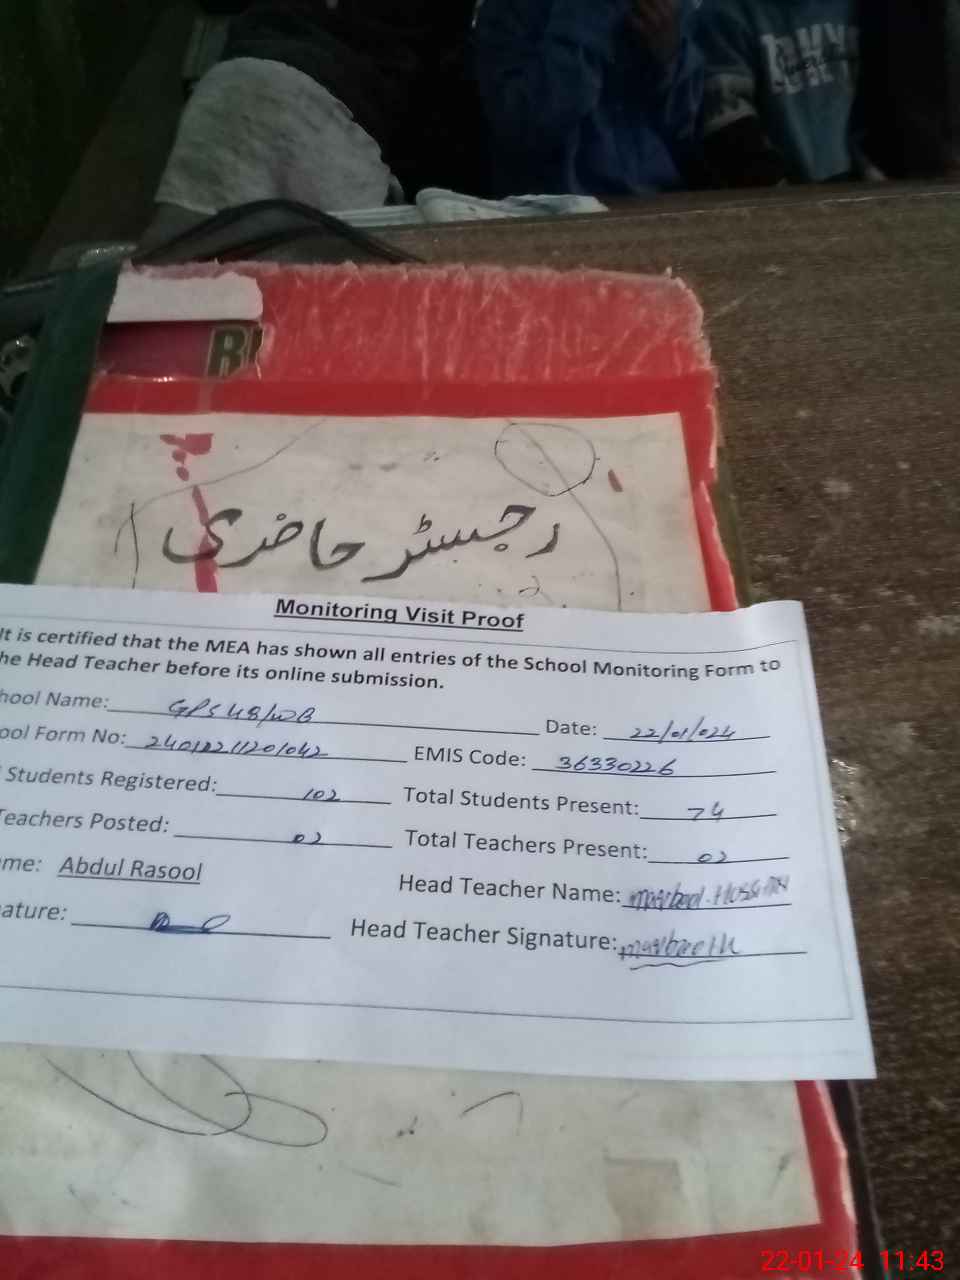 رجسٹر حاضری
Monitoring Visit Proof
It is certified that the MEA has shown all entries of the School Monitoring Form to
he Head Teacher before its online submission.
hool Name: GPS 48/WB Date: 22/01/024
ool Form No: EMIS Code: 36330226
Students Registered: 102 Total Students Present: 74
Teachers Posted: 02 Total Teachers Present: 02
me: Abdul Rasool Head Teacher Name: Hussain
ature: Head Teacher Signature:
22-01-24 11:43